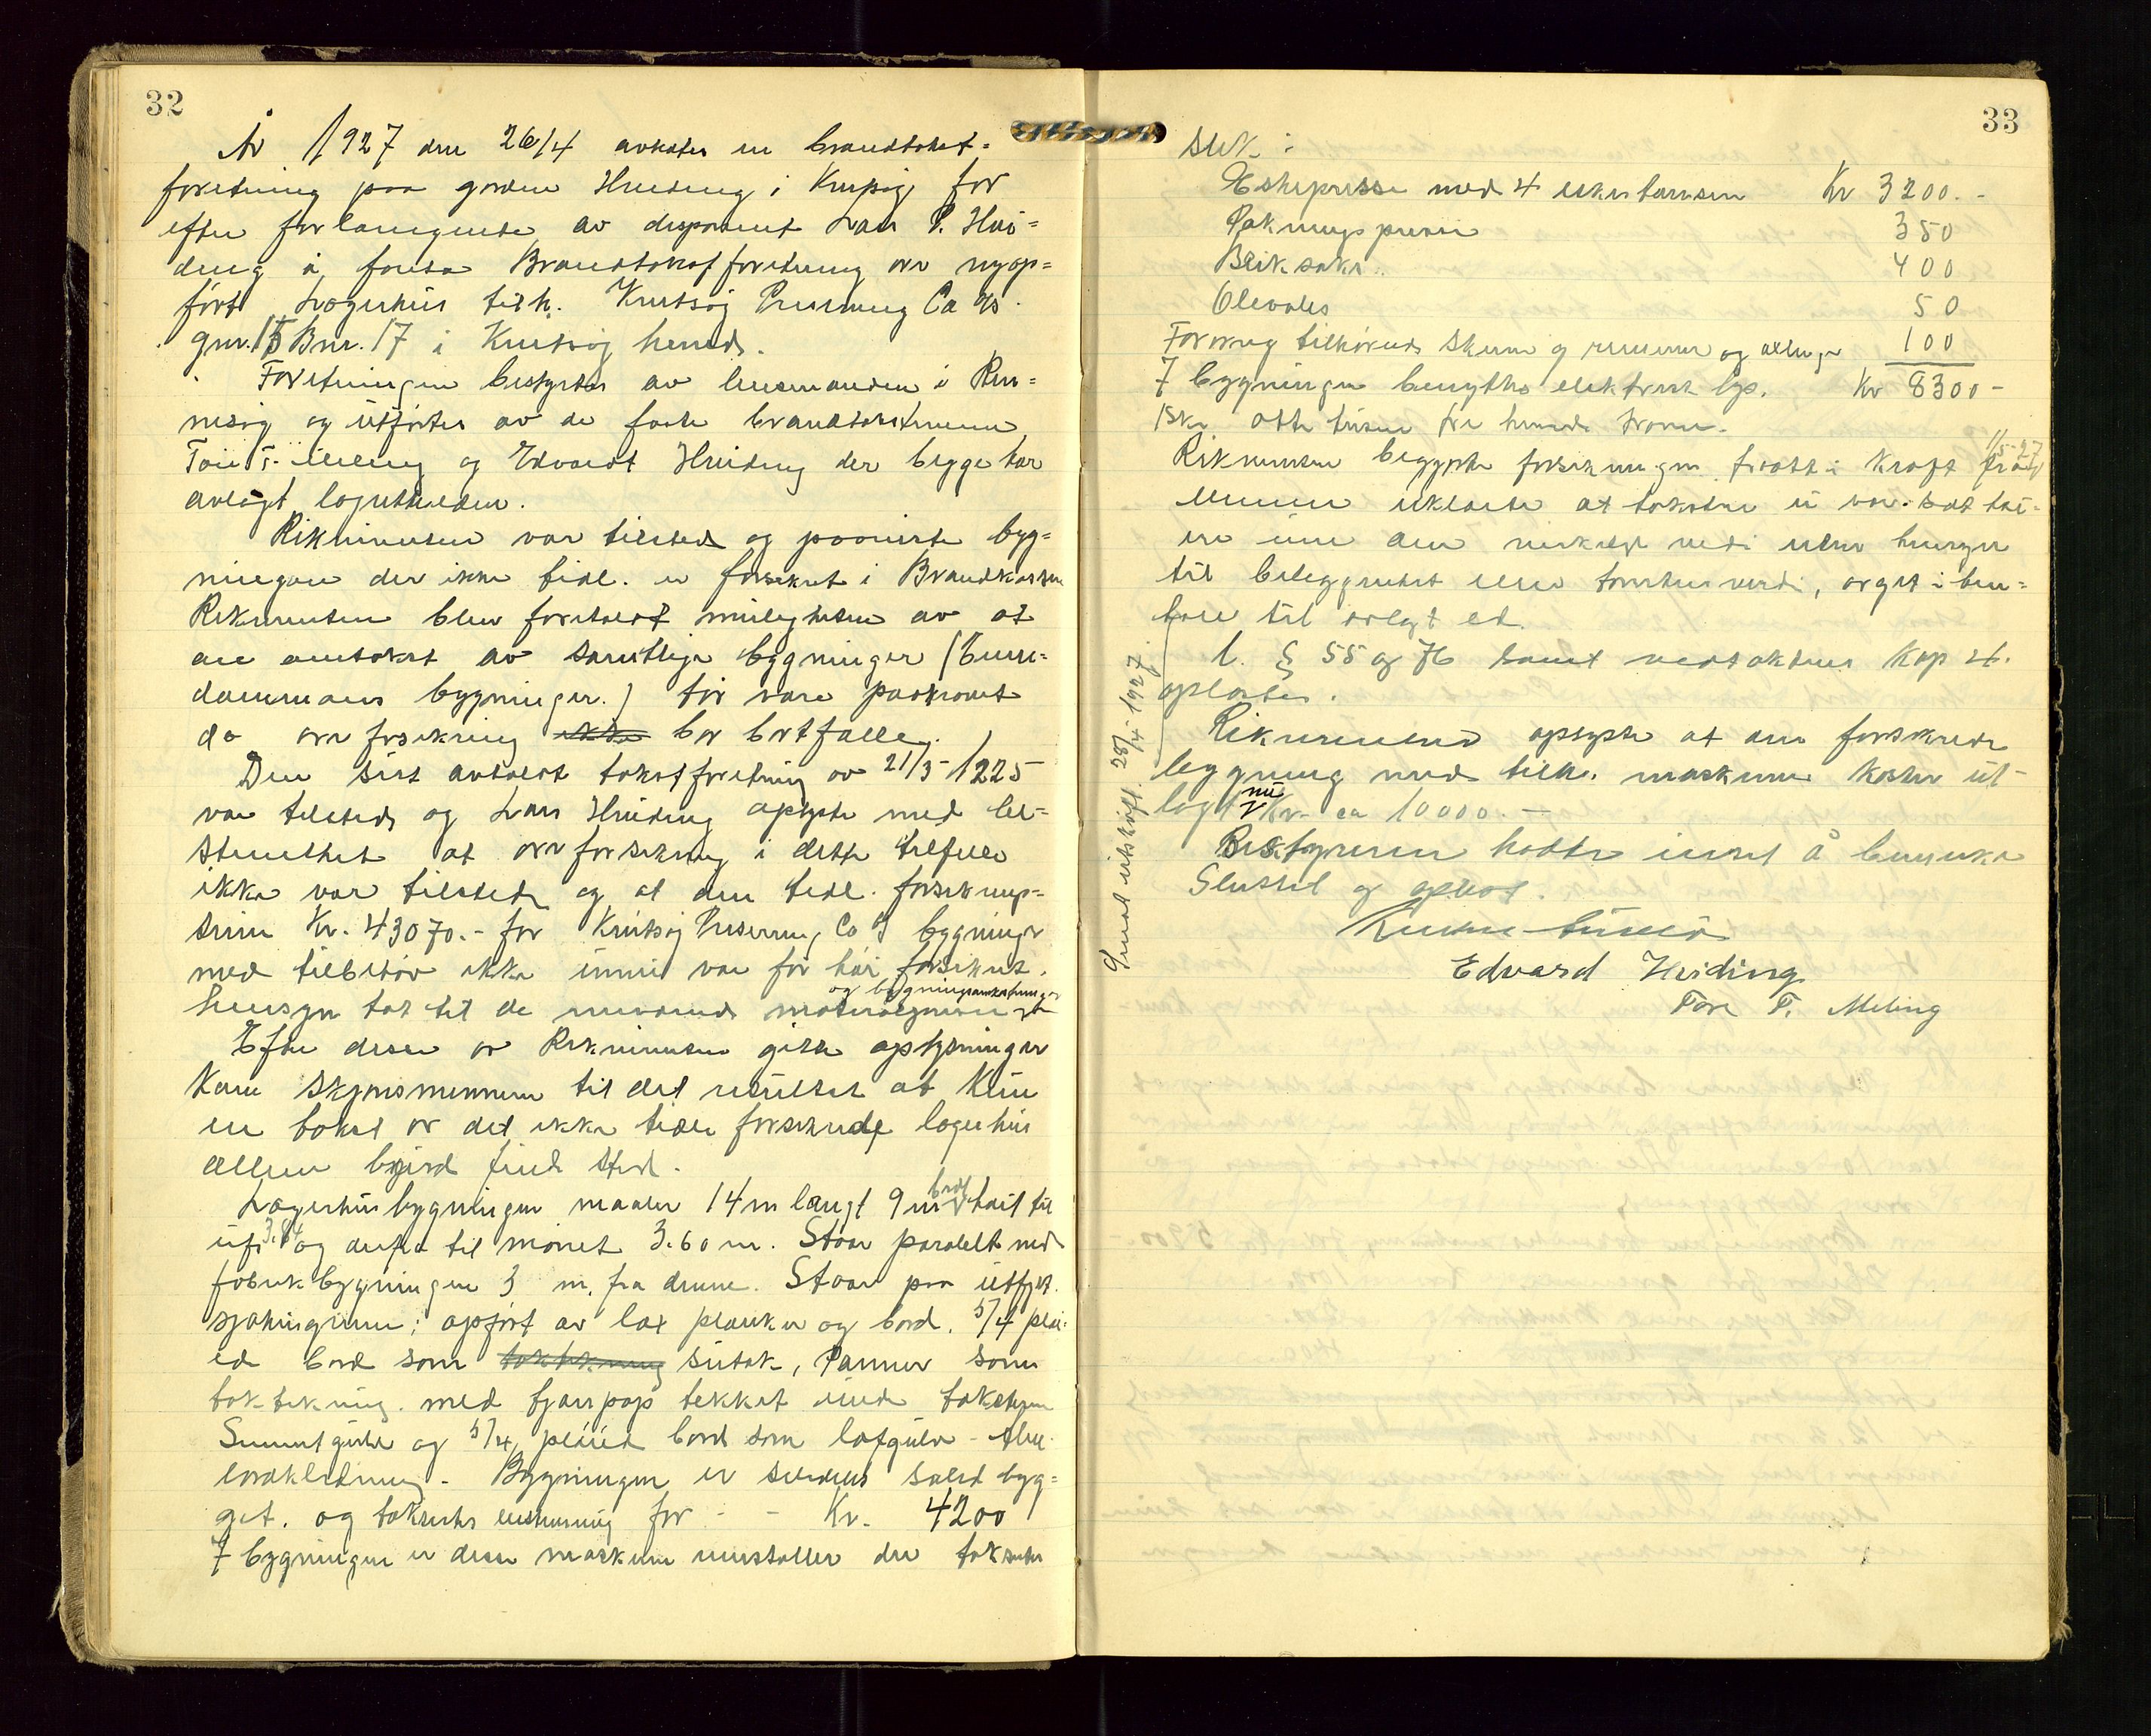 32
År 1927 den 26/4 avholdes en brandtakst=
forretning paa garden Hviding i Kvitsøy for
efter forlangende av disponent Lars P. Hvi=
ding å foreta Brandtakstforretning over nyop=
ført Lagerhus tilh. Kvitsøy Preserving Co A/s.
gnr. 15 Bnr. 17 i Kvitsøy herred.
Forretningen bestyrtes av lensmanden i Ren=
nesøy og utførtes av de faste brandtakstmenn
Tore T. Meling og Edvard Hviding der begge har
avlagt lagrettheden.
Rekvirenten var tilstede og paaviste byg=
ningen der ikke tidl. er forsikret i Brandkassen
Rekvirenten blev foreholdt muligheten av at
en omtakst av samtlige bygninger (Eien=
dommens bygninger.) før være paakrævet
da overforsikring ikke bør bortfalle.
Den sist avholdt takstforretning av 21/5 1925
var tilstede og Lars Hviding oplyste med be=
stemthet at overforsikring i dette tilfelle
ikke var tilstede og at den tidl. forsikrings=
sum Kr. 43070.- for Kvitsøy Preserving Co's bygninger
med tilbehør ikke ennu var for høi forsikret.
hensyn tat til de nuværende materialpriser og bygningsomkostninger
Efter disse av Rekvirenten gitte oplysninger
kom skjønsmennene til det resultat at kun
en takst av det ikke tidl. forsikrede lagerhus
allene burde finde sted.
Lagerhusbygningen maaler 14 m langt 9 m bredt høit til
ufs 3.84 og derfra til mønet 3.60 m. Staar paralelt med
fabrikbygningen 3 m. fra denne. Staar paa utfylt
sjøhusgrunn; opført av lagt planker og bord. 5/4 pløi=
ed bord som taktekning sutak, Panner som
taktekning. med tjærepap tekket under takstein
Sementgulv og 5/4 pløied bord som loftgulv -
bordkledning. Bygningen er særdeles solid byg=
get. og takseres for - - Kr. 4200
I bygningen er disse maskiner innstallert der takseres
33
slik:
Eskepresse med 4 eskestanser Kr 3200.-
Pakningspresse 350
Bliksaks.. 400
Olevales 50
Forøvrig tilhørende skiver og remmer og aksling 100
I bygningen benyttes elektrisk lys. Kr 8300-
Skr. otte tusen tre hundre kroner.
Rekvirenten begjærte forsikringen trætt i kraft fra 1/5-27
Mennene erklærte at taksten ei var sat høi-
ere enn den virkelige verdi uten hensyn
til beliggenhet eller tomtens verdi, avgit i hen=
hold til avlagt ed.
L. § 55 og 76 samt vedtektenes Kap 4.
oplæstes.
Rekvirenten oplyste at den forsikrede
bygning med tilh. maskiner koster ut-
lagt nu Kr. ca 10000.-
Bestyreren hadde intet å bemerke
Sluttet og ophævet.
Edvard Hviding
Tore T. Meling
Gjenat utskrift 28/4-1927.